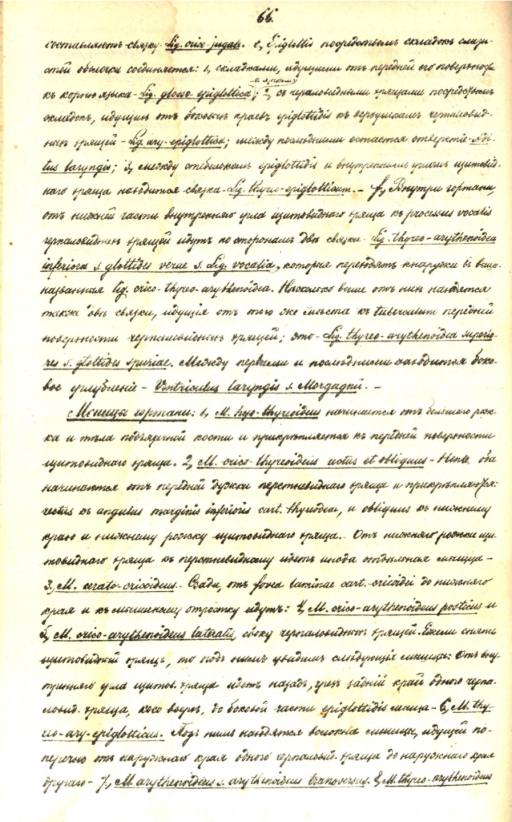 66.
составляютъ связку Lig. crico-jugale. e, Epiglottis посредствомъ складокъ слизи-
стой оболочки соединяется: 1, складками, идущими отъ передней его поверхности
къ корню языка - Lig. glosso-epiglottica; 2, съ черпаловидными хрящами посредствомъ
складокъ, идущихъ отъ боковыхъ краевъ epiglottidis къ верхушкамъ черпаловид-
ныхъ хрящей - Lig. ary-epiglottica; между послѣдними остается отверстіе - Adi-
tus laryngis; 3, между стебелькомъ epiglottidis и внутреннимъ угломъ щитовид-
наго хряща находится связка - Lig. thyreo-epiglotticum. - f, Внутри гортани,
отъ нижней части внутренняго угла щитовиднаго хряща къ processus vocalis
черпаловидныхъ хрящей идутъ по сторонамъ двѣ связки - Lig. thyreo-arythenoidea
inferiora s. glottides verae s. Lig. vocalia, которыя переходятъ кнаружи въ выше-
названная lig. crico-thyreo-arythenoidea. Нѣсколько выше отъ нихъ находятся
также двѣ связки, идущія отъ того же мѣста къ tuberculum передней
поверхности черпаловидныхъ хрящей; это - Lig. thyreo-arythenoidea superio-
res s. glottides spuriae. Между первыми и послѣдними находится боко-
вое углубленіе - Ventriculus laryngis s. Morgagnii. -
Мышцы гортани: 1, M. hyo-thyreoideus начинается отъ большого рож-
ка и тѣла подъязычной кости и прикрѣпляется къ передней поверхности
щитовиднаго хряща. 2, M. crico-thyreoideus rectus et obliquus - оба
начинаются отъ передней дужки перстневиднаго хряща и прикрѣпляются:
rectus къ angulus marginis inferioris cart. thyreoideae, а obliquus къ нижнему
краю и нижнему рожку щитовиднаго хряща. Отъ нижняго рожка щи-
товиднаго хряща къ перстневидному идетъ иногда отдѣльная мышца -
3, M. cerato-cricoideus. Сзади, отъ fovea laminae cart. cricoidei до нижняго
края и къ мышечному отростку идутъ: 4, M. crico-arythenoideus posticus и
5, M. crico-arythenoideus lateralis, сбоку черпаловидныхъ хрящей. Если снять
щитовидный хрящъ, то подъ нимъ увидимъ слѣдующія мышцы: Отъ вну-
тренняго угла щитов. хряща идетъ назадъ, чрезъ задній край одного черпа-
ловид. хряща, косо вверхъ, до боковой части epiglottidis мышца - 6, M. thy-
reo-ary-epiglotticus. Подъ нимъ находятся волокна мышцы, идущей по-
перечно отъ наружнаго края одного черпаловид. хряща до наружнаго края
другаго - 7, M. arythenoideus s. arythenoideus transversus. 8, M. thyreo-arythenoideus